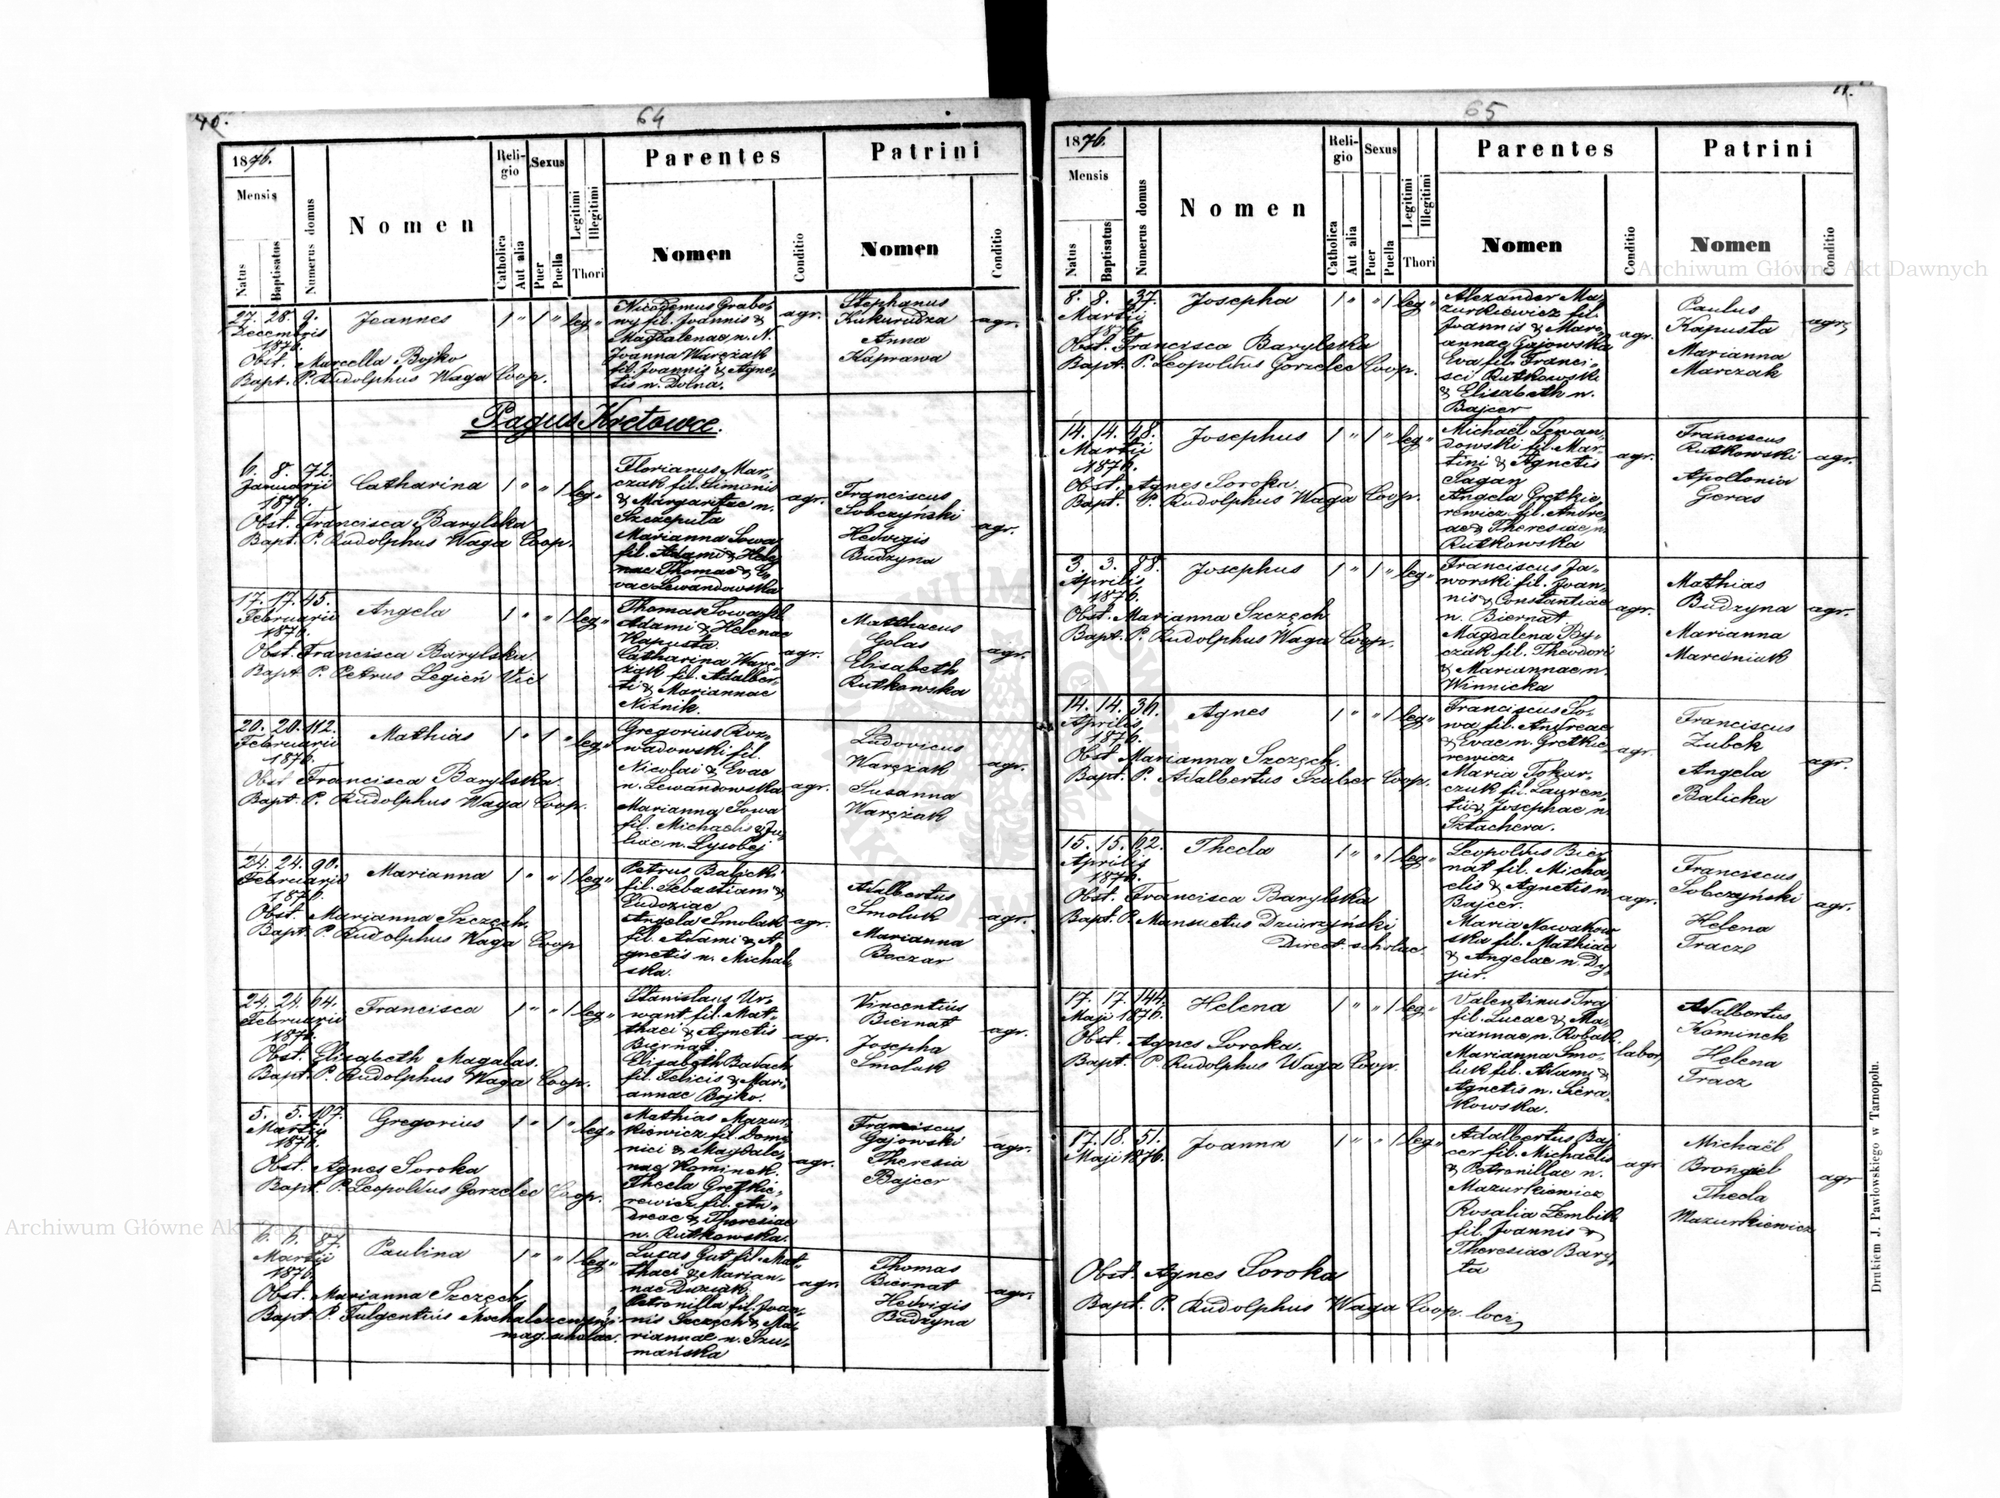 40.
64
1876.
Mensis
Natus
Baptisatus
Numerus domus
Nomen
Religio
Catholica
Aut alia
Sexus
Puer
Puella
Legitimi
Illegitimi
Thori
Parentes
Nomen
Conditio
Patrini
Nomen
Conditio
27. 28. 9.
Decembris
1876.
Joannes
1 " 1 " leg. "
Obst. Marcella Bojko
Bapt. P. Rudolphus Waga Coop.
Nicodemus Grabo-
wy fil. Joannis &
Magdalenae n. N.
Joanna Warczak
fil. Joannis & Agne-
tis n. Dolna.
agr.
Stephanus
Kukurudza
Anna
Kaprawa
agr.
Pagus Kretowce.
6. 8. 72.
Januarii
1876.
Catharina
1 " " 1 leg. "
Obst. Francisca Barylska
Bapt. P. Rudolphus Waga Coop.
Florianus Mar-
czak fil. Simonis
& Margaritae n.
Szczeputa
Marianna Sowa
fil. Adami & Hele-
nae Thomae & E-
vae Lewandowska
agr.
Franciscus
Sobczyński
Hedvigis
Budzyna
agr.
17. 17. 45.
Februarii
1876.
Angela
1 " " 1 leg. "
Obst. Francisca Barylska.
Bapt. P. Petrus Legień Vic
Thomas Sowa fil.
Adami & Helenae
Kapusta.
Catharina Warc-
zak fil. Adalber-
ti & Mariannae
Niżnik.
agr.
Matthaeus
Golas
Elisabeth
Rutkowska
agr.
20. 20. 112.
Februarii
1876.
Mathias
1 " 1 " leg. "
Obst. Francisca Barylska.
Bapt. P. Rudolphus Waga Coop.
Gregorius Roz-
wadowski fil.
Nicolai & Evae
n. Lewandowska
Marianna Sowa
fil. Michaelis & Ju-
liae n. Lysobej
agr.
Ludovicus
Warczak
Susanna
Warczak
agr.
24. 24. 90.
Februarii
1876.
Marianna
1 " " 1 leg. "
Obst. Marianna Szczęch.
Bapt. P. Rudolphus Waga Coop
Petrus Balicki
fil. Sebastiani &
Eudoxiae
Angela Smolak
fil. Adami & A-
gnetis n. Michal-
ska.
agr.
Adalbertus
Smoluk
Marianna
Boczar
agr.
24. 24. 64.
Februarii
1876.
Francisca
1 " " 1 leg. "
Obst. Elisabeth Magalas.
Bapt. P. Rudolphus Waga Coop.
Stanislaus Ur-
want fil. Mat-
thaei & Agnetis
Biernat.
Elisabeth Balach
fil. Felicis & Mari-
annae Bojko.
agr.
Vincentius
Biernat
Josepha
Smoluk
agr.
5. 5. 107.
Martii
1876.
Gregorius
1 " 1 " leg. "
Obst. Agnes Soroka
Bapt. P. Leopoldus Gorzelec Coop.
Mathias Mazur-
kiewicz fil. Domi-
nici & Magdale-
nae Kominek.
Thecla Gretkie-
rewicz fil. An-
dreae & Theresiae
n. Rutkowska.
agr.
Franciscus
Gajowski
Theresia
Bajcer
agr.
6. 6. 87.
Martii
1876.
Paulina
1 " " 1 leg. "
Obst. Marianna Szczęch.
Bapt. P. Fulgentius
mag. scholae.
Lucas Gut fil. Mat-
thaei & Marian-
nae Duziak.
Petronilla fil. Joan-
nis Szczęch & Ma-
riannae n. Szu-
mańska
agr.
Thomas
Biernat
Hedvigis
Budzyna
agr.
65
11.
1876.
Mensis
Natus
Baptisatus
Numerus domus
Nomen
Religio
Catholica
Aut alia
Sexus
Puer
Puella
Legitimi
Illegitimi
Thori
Parentes
Nomen
Conditio
Patrini
Nomen
Conditio
8. 8. 37.
Martii
1876.
Josepha
1 " " 1 leg. "
Obst. Francisca Barylska
Bapt. P. Leopoldus Gorzelec Coop.
Alexander Ma-
zurkiewicz fil.
Joannis & Mari-
annae Gajowska
Eva fil. Franci-
sci Rutkowski
& Elisabeth n.
Bajcer
agr.
Paulus
Kapusta
Marianna
Marczak
agr.
14. 14. 48.
Martii
1876.
Josephus
1 " 1 " leg. "
Obst. Agnes Soroka.
Bapt. P. Rudolphus Waga Coop.
Michaël Lewan-
dowski fil. Mar-
tini & Agnetis
Sagan
Angela Gretkie-
rewicz fil. Andre-
ae & Theresiae n.
Rutkowska
agr.
Franciscus
Rutkowski
Apollonia
Geras
agr.
3. 3. 88.
Aprilis
1876.
Josephus
1 " 1 " leg. "
Obst. Marianna Szczęch
Bapt. P. Rudolphus Waga Coop.
Franciscus Ja-
worski fil. Joan-
nis & Constantiae
n. Biernat
Magdalena By-
czak fil. Theodori
& Mariannae n.
Winnicka
agr.
Mathias
Budzyna
Marianna
Marciniak
agr.
14. 14. 36.
Aprilis
1876.
Agnes
1 " " 1 leg. "
Obst. Marianna Szczęch.
Bapt. P. Adalbertus Szuber Coop.
Franciscus So-
wa fil. Andreae
& Evae n. Gretkie-
rewicz.
Maria Tokar-
czuk fil. Lauren-
tii & Josephae n.
Sztachera.
agr.
Franciscus
Zubek
Angela
Balicka
agr.
15. 15. 62.
Aprilis
1876.
Thecla
1 " " 1 leg. "
Obst. Francisca Barylska
Bapt. P. Mansuetus Dzierzyński
Direct. scholae.
Leopoldus Bier-
nat fil. Micha-
elis & Agnetis n.
Bajcer.
Maria Nowakow-
ska fil. Mathiae
& Angelae n. Dy-
jur.
agr.
Franciscus
Sobczyński
Helena
Tracz
agr.
17. 17. 144.
Maji 1876.
Helena
1 " " 1 leg. "
Obst. Agnes Soroka.
Bapt. P. Rudolphus Waga Coop.
Valentinus Traj
fil. Lucae & Ma-
riannae n. Robak.
Marianna Smo-
luk fil. Adami &
Agnetis n. Siera-
kowska.
labor.
Adalbertus
Kominek
Helena
Tracz
17. 18. 51.
Maji 1876.
Joanna
1 " " 1 leg. "
Adalbertus Baj-
cer fil. Michaelis
& Petronillae n.
Mazurkiewicz
Rosalia Zembik
fil. Joannis &
Theresiae Bary-
ta
agr.
Michaël
Brongel
Thecla
Mazurkiewicz
agr
Obst. Agnes Soroka
Bapt. P. Rudolphus Waga Coop. loci
Drukiem J. Pawłowskiego w Tarnopolu.
Archiwum Główne Akt Dawnych
Archiwum Główne Akt Dawnych